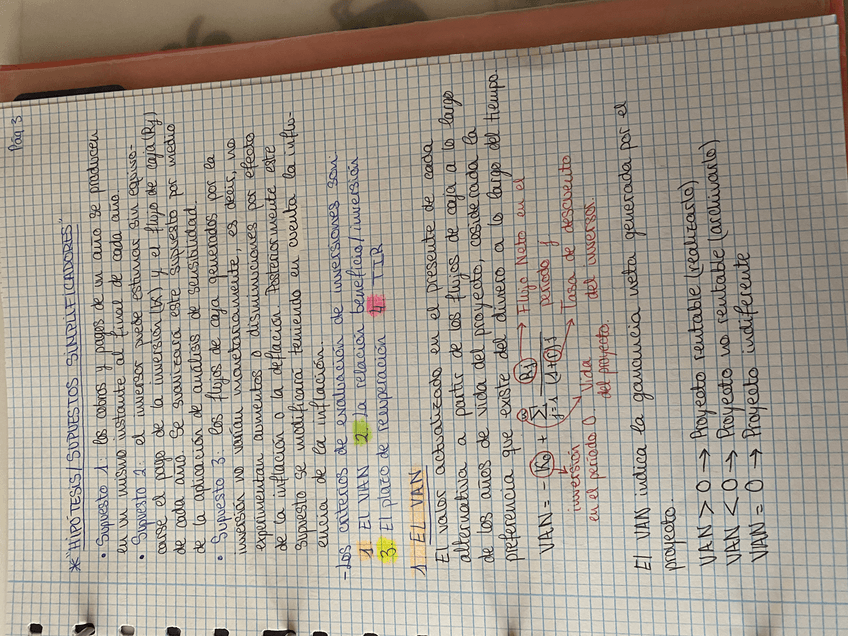 Pág 3
* "HIPÓTESIS / SUPUESTOS SIMPLIFICADORES"
• Supuesto 1: los cobros y pagos de un año se producen
en un mismo instante al final de cada año.
• Supuesto 2: el inversor puede estimar sin equivo-
carse el pago de la inversión (K) y el flujo de caja (Rj)
de cada año. Se suavizará este supuesto por medio
de la aplicación de análisis de sensibilidad.
• Supuesto 3: los flujos de caja generados por la
inversión no varían monetariamente, es decir, no
experimentan aumentos o disminuciones por efecto
de la inflación o la deflación. Posteriormente este
supuesto se modificará teniendo en cuenta la influ-
encia de la inflación.
- Los criterios de evaluación de inversiones son
1. El VAN 2. la relación beneficio / inversión
3. El plazo de recuperación 4. TIR
1. EL VAN
El valor actualizado en el presente de cada
alternativa a partir de los flujos de caja a lo largo
de los años de vida del proyecto, considerada la
preferencia que existe del dinero a lo largo del tiempo.
VAN = - K0 + n Σ j=1 Rj / (1+r)^j
→ Flujo Neto en el
período j
→ Tasa de descuento
del inversor
inversión
en el período 0
Vida
del proyecto.
El VAN indica la ganancia neta generada por el
proyecto.
VAN > 0 → Proyecto rentable (realizarlo)
VAN < 0 → Proyecto no rentable (archivarlo)
VAN = 0 → Proyecto indiferente